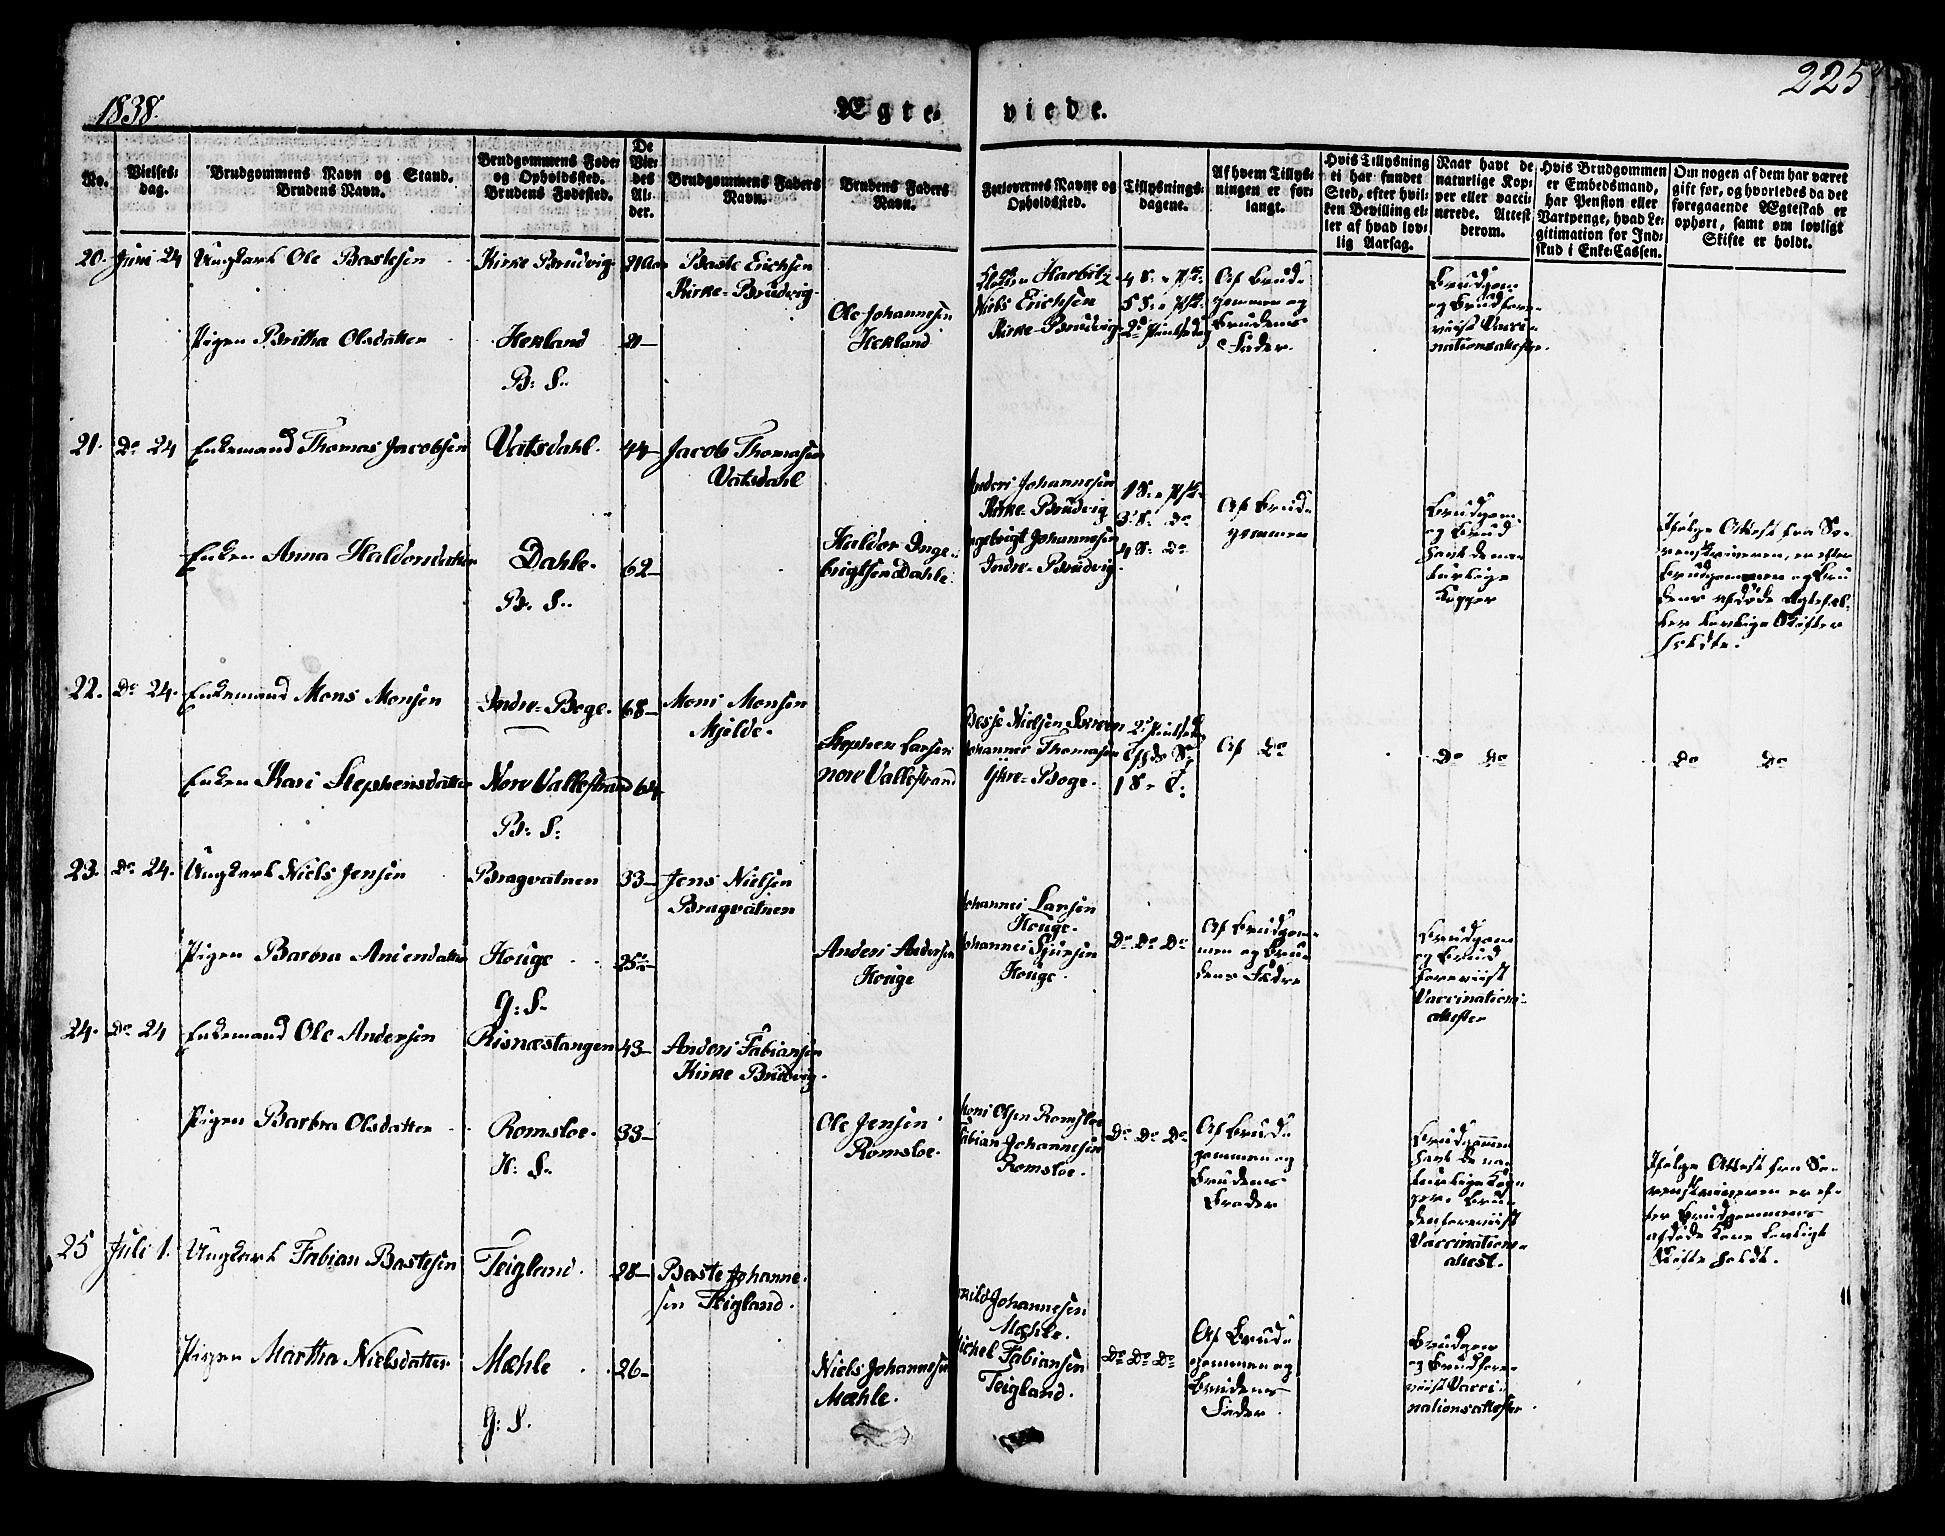 1838.
Ægte-
viede.
225
No.
Vielses-
dag.
Brudgommens Navn og Stand.
Brudens Navn.
Brudgommens Føde-
og Opholdssted.
Brudens Fødested.
De
Vie-
des
Al-
der.
Brudgommens Faders
Navn.
Brudens Faders
Navn.
Forlovernes Navne og
Opholdssted.
Tillysnings-
dagene.
Af hvem Tillys-
ningen er for-
langt.
Hvis Tillysning
ei har fundet
Sted, efter hvil-
ken Bevilling el-
ler af hvad lov-
lig Aarsag.
Naar havt de
naturlige Kop-
per eller vacci-
nerede. Attest
derom.
Hvis Brudgommen
er Embedsmand,
har Pension eller
Vartpenge, hvad Le-
gitimation for Ind-
skud i Enke-Cassen.
Om nogen af dem har været
gift før, og hvorledes da det
foregaaende Ægteskab er
ophørt, samt om lovligt
Skifte er holdt.
20. Juni 24 Ungkarl Ole Bastesen
Kirke Brudvig
Baste Erichsen
Kirke-Brudvig
Harbitz
Niels Erichsen
Kirke-Brudvig
Af Brud-
gommen og
Brudens
Fader.
Brudgom
og Brud fore-
viist Vacci-
nationsattester.
Pigen Britha Olsdatter
Hekland
B: S.
Ole Johannesen
Hekland
21. Do 24 Enkemand Thomas Jacobsen
Vatsdahl.
44
Jacob Thomasen
Vatsdahl
Anders Johannesen
Kirke-Brudvig
Ingebrigt Johannesen
Indre-Brudvig.
3 S. Do
4 S. Do
Af Brud-
gommen
Brudgom
og Brud
havt de na-
turlige
Kopper
Ifølge Attest fra So-
renskriveren, er efter
Brudgommen og Bru
dens afdøde Ægtefæl-
ler lovlige Skifter
holdte.
Enken Anna Haldorsdatter
Dahle.
B. S.
62
Haldor Inge-
brigtsen Dahle.
22. Do 24. Enkemand Mons Monsen
Indre-Boge.
68
Mons Monsen
Mjelde.
Besse Nielsen
Johannes Thomasen
Ytre-Boge.
Af Do
Do Do
Do Do
Enken Kari Stephensdatter
Nore Vallestrand
64
B: S:
Stephen Larsen
nore Vallestrand
23. Do 24. Ungkarl Niels Jensen
Bragvatnen
33
Jens Nielsen
Bragvatnen
Johannes Larsen
Houge.
Johannes Sjursen
Houge.
Do Do Do
Af Brudgom-
men og Bru-
dens Fædre
Brudgom
og Brud
foreviist
Vaccinations-
attester
Pigen Barbra Andersdatter
Houge
G: S.
25
Anders Andersen
Houge
24. Do 24 Enkemand Ole Andersen
Risnæstangen
43
Anders Fabiansen
Kirke Brudvig.
Pigen Barbra Olsdatter
Romsloe.
H: S.
33
Ole Jensen
Romsloe.
Mons Olsen Romsloe
Fabian Johannesen
Romsloe.
Do Do Do
Af Brud-
gommen og
Brudens
Broder
Brudgommen
havt de na-
turlige Kop-
per. Bru-
den foreviist
Vaccinations-
attest.
Ifølge Attest fra So-
renskriveren er ef-
ter Brudgommens
afdøde Kone lovligt
Skifte holdt.
25 Juli 1. Ungkarl Fabian Bastesen
Teigland.
28
Baste Johanne-
sen Teigland.
Johannesen
Mæhle.
Michel Fabiansen
Teigland.
Do Do Do
Af Brud-
gommen og
Brudens
Fader.
Brudgom
og Brud fore-
viist Vacci-
nationsattester.
Pigen Martha Nielsdatter
Mæhle
G: S.
26
Niels Johannesen
Mæhle.